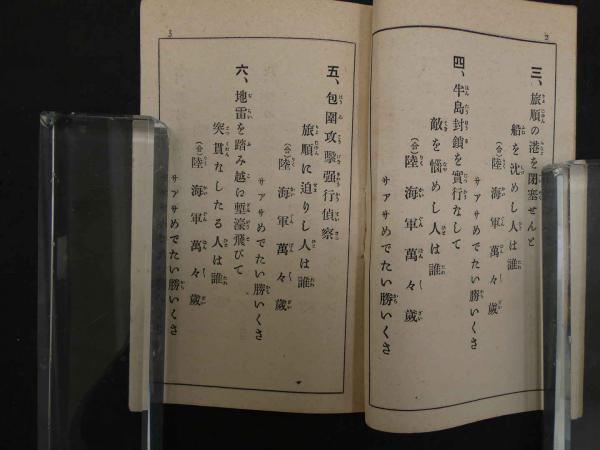 2
三、旅順の港を閉塞せんと
船を沈めし人は誰
(合)陸海軍萬々歲
サアサめでたい勝いくさ
四、半島封鎖を實行なして
敵を惱めし人は誰
(合)陸海軍萬々歲
サアサめでたい勝いくさ
3
五、包圍攻擊强行偵察
旅順に迫りし人は誰
(合)陸海軍萬々歲
サアサめでたい勝いくさ
六、地雷を踏み越に塹濠飛びて
突貫なしたる人は誰
(合)陸海軍萬々歲
サアサめでたい勝いくさ